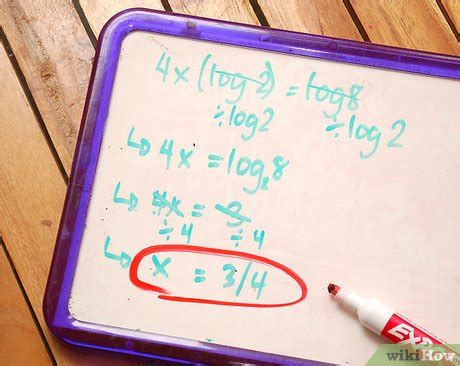 4x (log 2) = log 8
÷log2 ÷log 2
↳ 4x = log₂8
↳ 4x = 3
÷4 ÷4
↳ x = 3/4
EXP
wikiHow